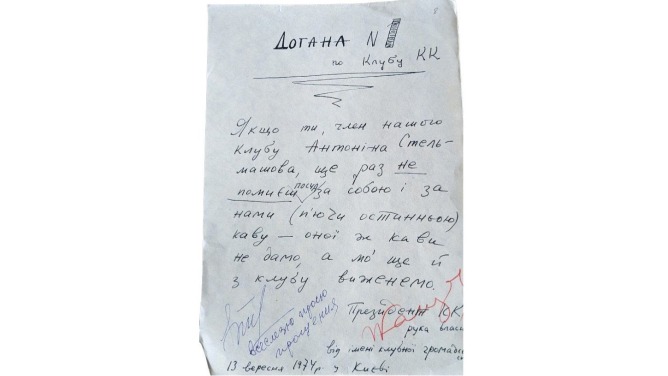 Догана N 1
по Клубу КК
Якщо ти, член нашого
клубу Антоніна Стель-
машова, ще раз не
помиєш посуд за собою і за
нами (п'ючи останньою)
каву — оної ж кави
не дамо, а мо' ще й
з клубу виженемо.
Президент КК
рука власна
від імені клубної громади
слезно прошу
прощения
13 вересня 1974 р у Києві